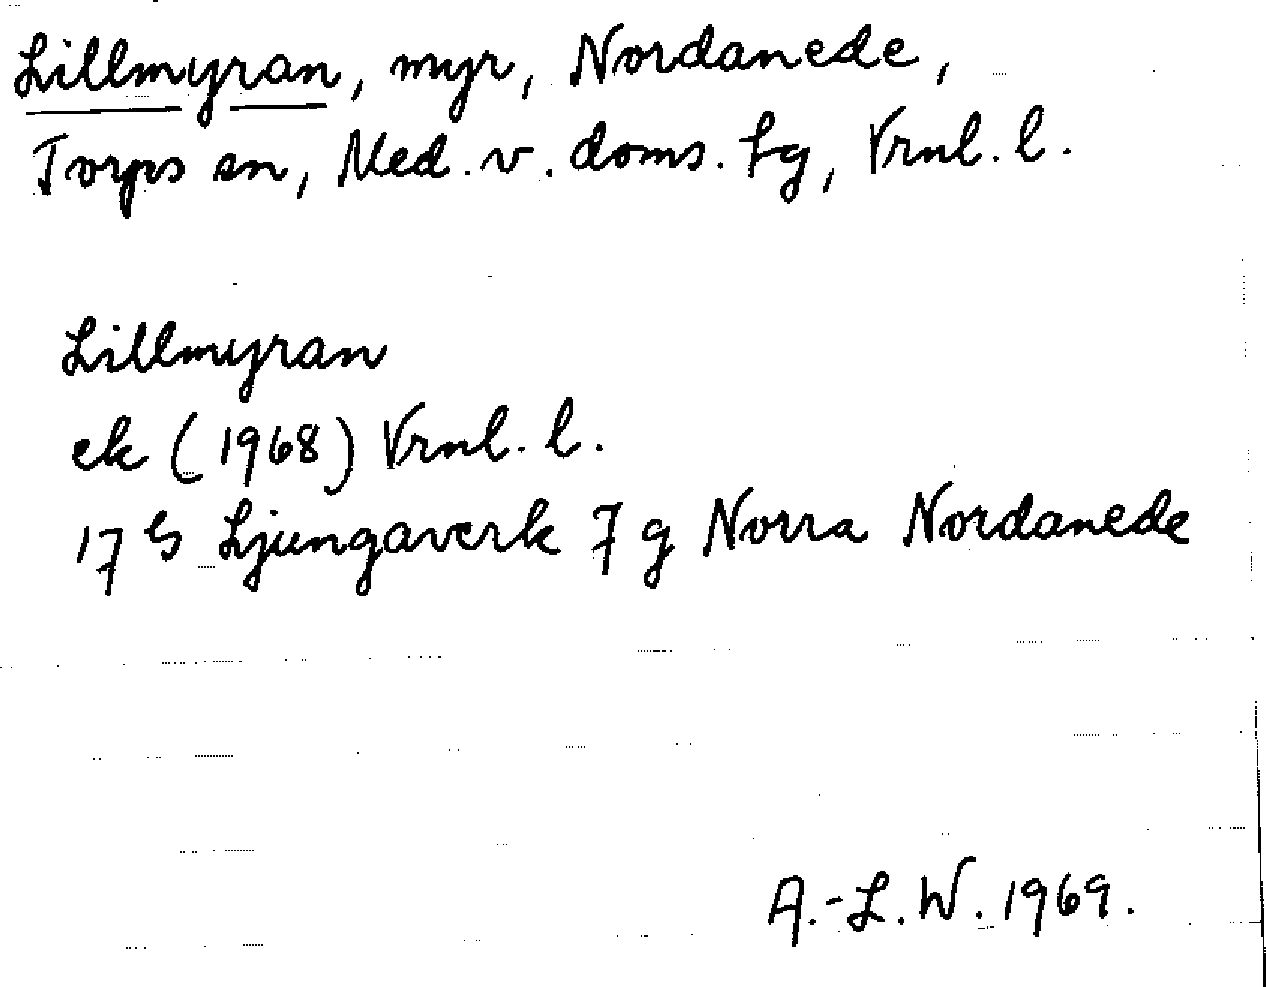 Lillmyran, myr, Nordanede,
Torps sn, Med. v. doms. hg, Vrnl. l.
Lillmyran
ek (1968) Vrnl. l.
17 G Ljungaverk 7 g Norra Nordanede
A.-L.W. 1969.